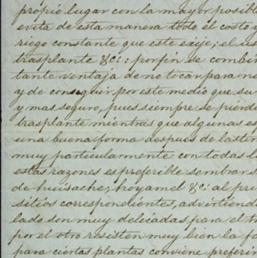 propio lugar con la mayor posibl
evita de esta manera todo el costo y
riego constante que este exije; el us
trasplante &c: por fin se combin
tante ventaja de no tocar para n
y de conseguir por este medio que su
y mas seguro, pues siempre se pierde
trasplante mientras que algunas es
una buena forma despues de las
muy particularmente con todas l
estas razones es preferible sembrar s
de huisache; hoyamel &c: al pri
sitios correspondientes, advirtiend
lado son muy delicadas para el t
por el otro resisten muy bien la fo
para ciertas plantas conviene preferir